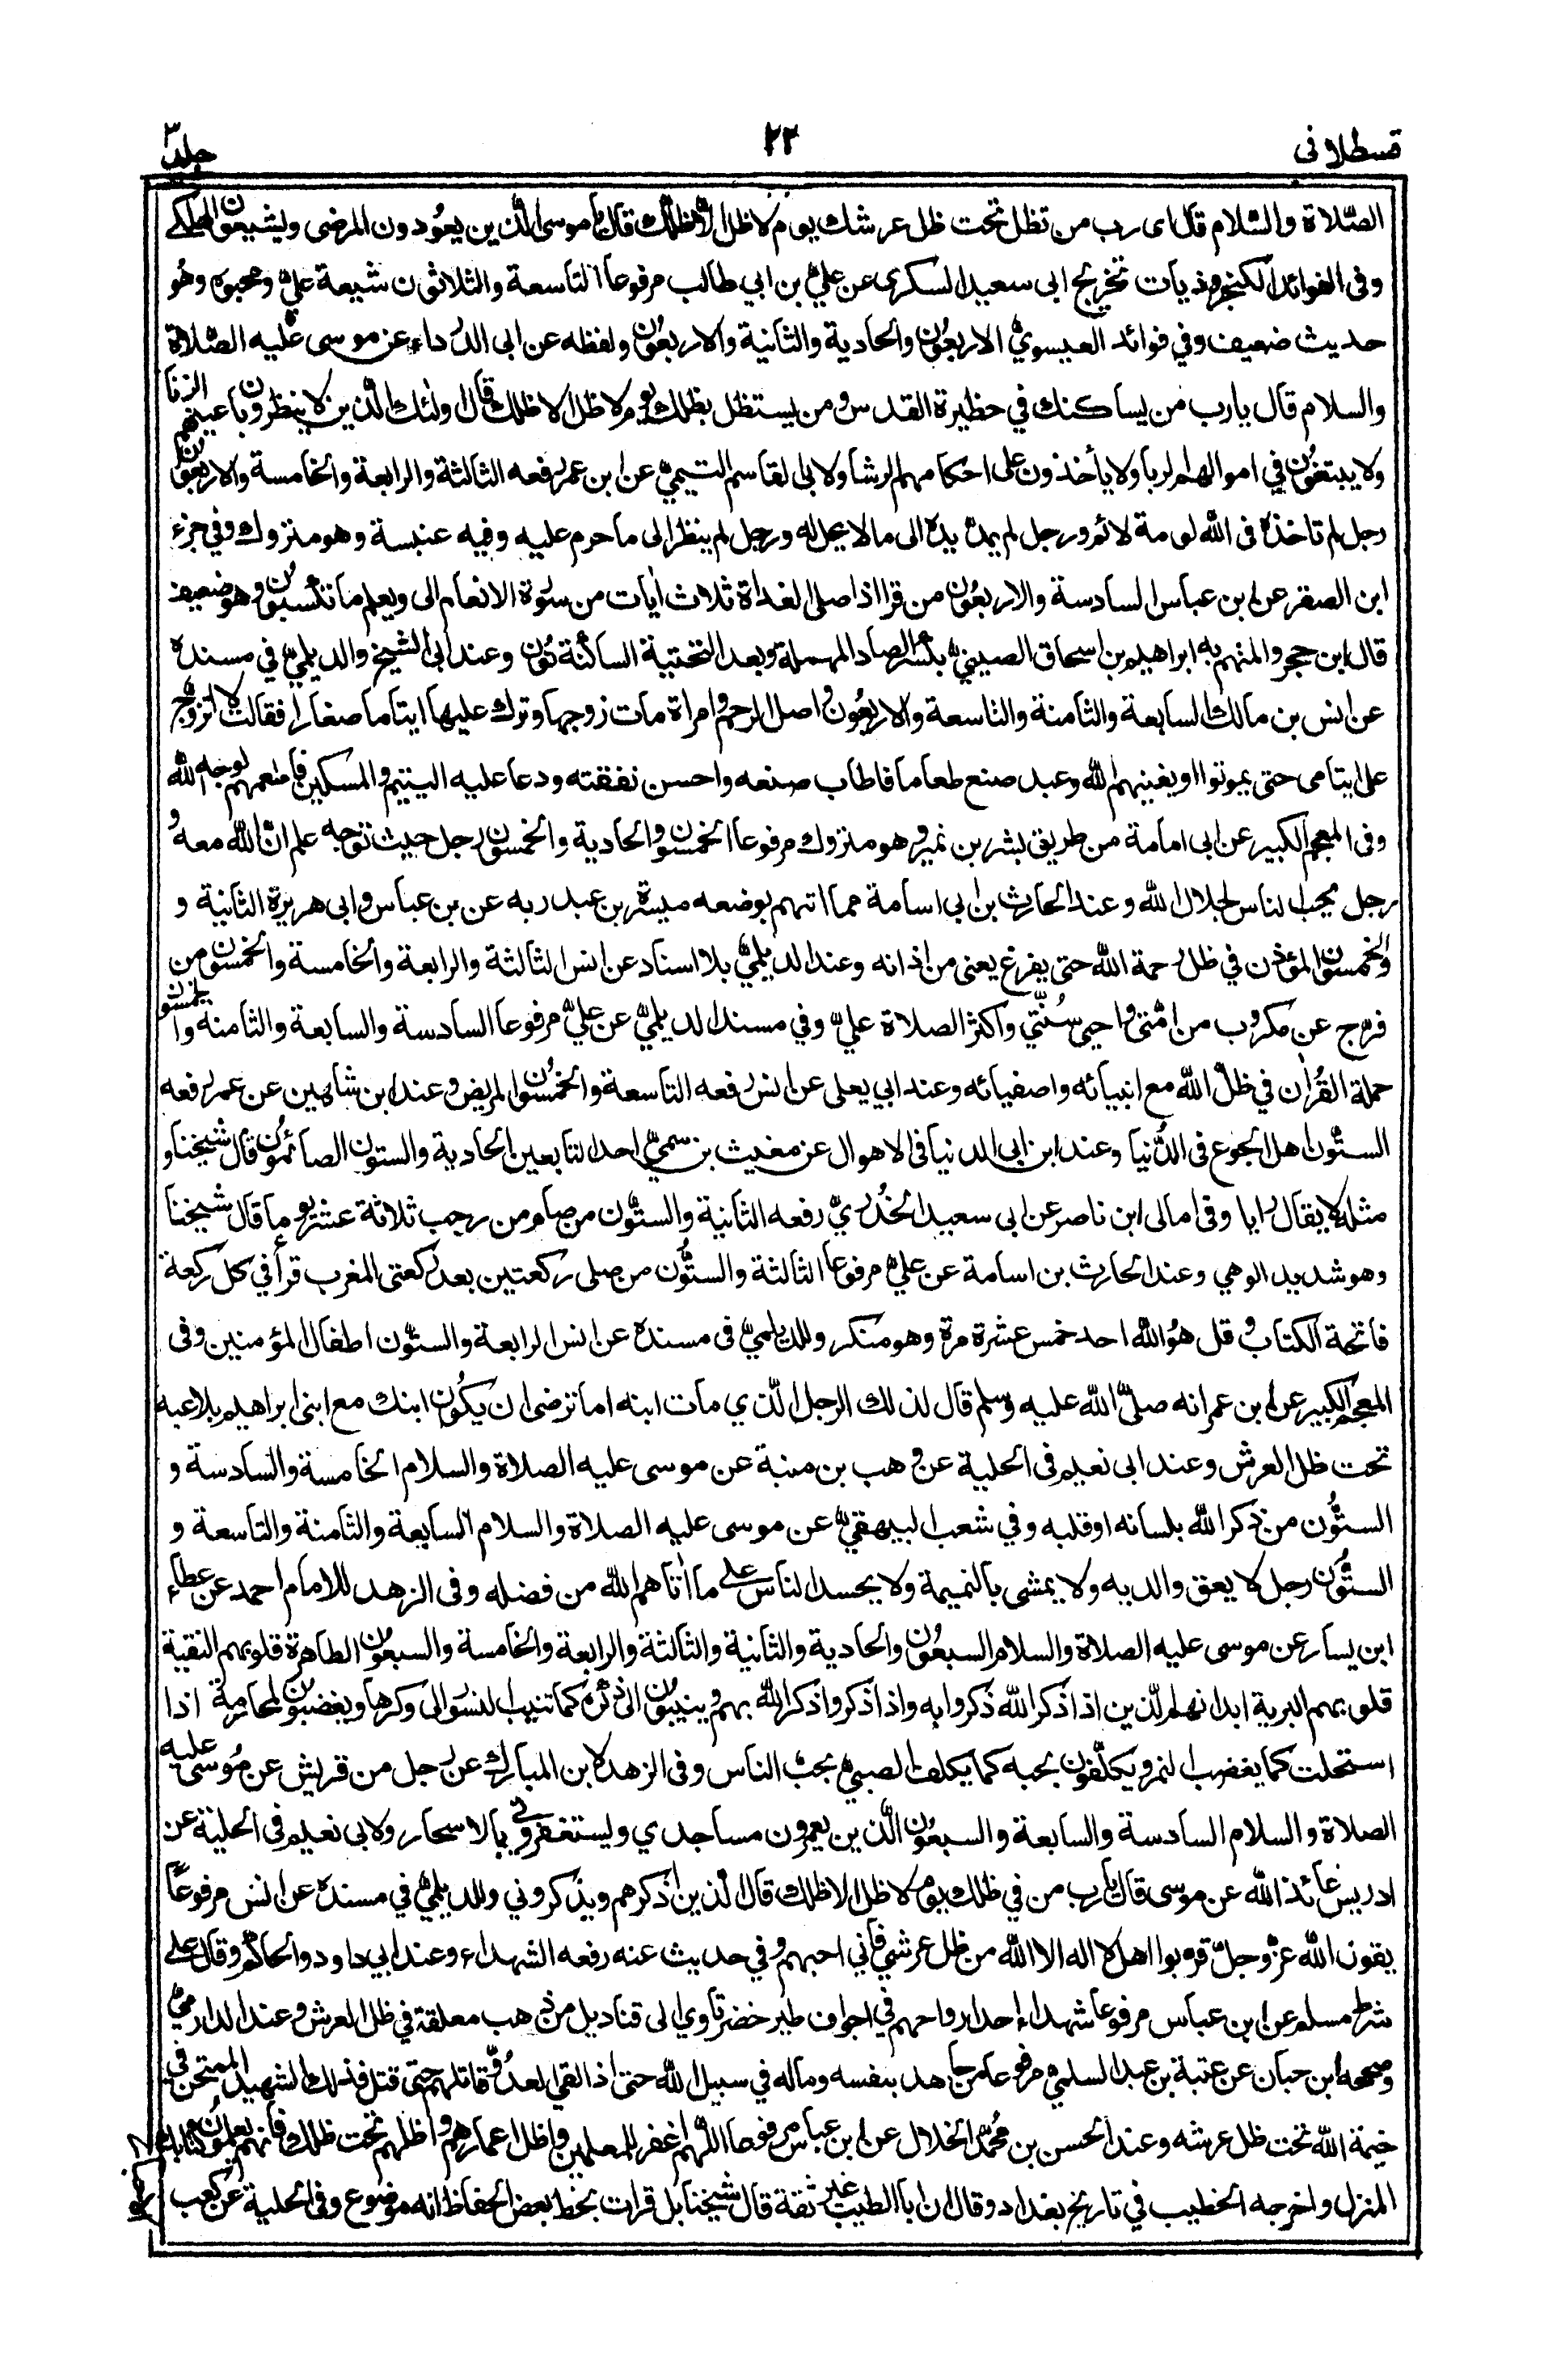 قسطلانی
٢٣
جلد ٣
الصّلاة والسّلام قال ای رب من تظل تحت ظل عرشك يوم لا ظل الّا ظلّك قال يا موسى الّذين يعُودون المرضى ويشيعون الهلكے
وفى الفوائد الكنجروذيات تخريج ابى سعيد السكرى عن علیّ بن ابي طالب مرفوعا التاسعة والثلاثون شيعة علیّ ومحبوه وهُو
حديث ضعيف وفي فوائد العيسويّ الاربعُون والحادية والثانية والاربعُون ولفظه عن ابى الدرداء عن موسى عليه الصّلاة
والسلام قال يارب من يساكنك في حظيرة القدس ومن يستظل بظلك يوم لا ظل الا ظلك قال اولئك الّذين لا ينظرون باعينهم الزنا
ولا يبتغُون في اموالهم الربا ولا يأخذون على احكامهم الرشا ولابى القاسم التيميّ عن ابن عمر رفعه الثالثة والرابعة والخامسة والاربعُون
رجل لم تاخذه فى الله لومة لائم ورجل لم يمد يده الى ما لا يحل له ورجل لم ينظر الى ما حرم عليه وفيه عنبسة وهو متروك وفي جزء
ابن الصقر عن ابن عباس السادسة والاربعُون من قرا اذا صلى الغداة ثلاث اٰيات من سُورة الانعام الى ويعلم ما تكسبُون وهو ضعيف
قال ابن حجر والمتهم به ابراهيم بن اسحاق الصينيّ بكسر الصاد المهملة وبعد التحتية الساكنة نون وعند ابى الشيخ والديلميّ في مسنده
عن انس بن مالك السابعة والثامنة والتاسعة والاربعُون واصل الرحم وامراة مات زوجها وترك عليها ايتاما صغارا فقالت لا اتزوّج
على ايتامى حتى يموتوا او يغنيهم الله وعبد صنع طعاما فاطاب صنعه واحسن نفقته ودعا عليه اليتيم والمسكين فاطعمهم لوجه الله
وفى المعجم الكبير عن ابى امامة من طريق بشر بن نمير وهو متروك مرفوعا الخمسون والحادية والخمسون رجل حيث توجه علم انّ الله معه و
رجل يحب الناس لجلال الله وعند الحارث بن ابى اسامة مما اتهم بوضعه ميسرة بن عبد ربه عن بن عباس وابى هريرة الثانية و
والخمسون المؤذن في ظل رحمة الله حتى يفرغ يعنى من اذانه وعند الديلميّ بلا اسناد عن انس الثالثة والرابعة والخامسة والخمسون من
فرج عن مكروب من امّتى واحيى سُنّتي واكثر الصلاة علیّ وفي مسند الديلميّ عن علیّ مرفوعا السادسة والسابعة والثامنة والخمسون
حملة القُراٰن في ظلّ الله مع انبيائه واصفيائه وعند ابي يعلى عن انس رفعه التاسعة والخمسُون المريض وعند ابن شاهين عن عمر رفعه
الستّون اهل الجوع فى الدُّنيا وعند ابن ابى الدنيا فى الاهوال عن مغيث بن سميّ احد التابعين الحادية والستون الصائمُون قال شيخنا و
مثله لا يقال رايا وفى امالى ابن ناصر عن ابى سعيد الخُدريّ رفعه الثانية والستّون من صام من رجب ثلاثة عشر يوما قال شيخنا
وهو شديد الوهي وعند الحارث بن اسامة عن علیّ مرفوعا الثالثة والستُّون من صلى ركعتين بعد ركعتى المغرب قرأ في كل ركعة
فاتحة الكتاب وقل هُو الله احد خمس عشرة مرة وهو منكر وللديلميّ فى مسنده عن انس الرابعة والستّون اطفال المؤمنين وفى
المعجم الكبير عن ابن عمر انه صلّى الله عليه وسلم قال لذلك الرجل الّذي مات ابنه اما ترضى ان يكُون ابنك مع ابنى ابراهيم يلاعبه
تحت ظل العرش وعند ابى نعيم فى الحلية عن وهب بن منبة عن موسى عليه الصلاة والسلام الخامسة والسادسة و
الستُّون من ذكر الله بلسانه او قلبه وفي شعب البيهقيّ عن موسى عليه الصلاة والسلام السابعة والثامنة والتاسعة و
الستُّون رجل لا يعق والديه ولا يمشى بالنميمة ولا يحسد الناس على ما اٰتاهم الله من فضله وفى الزهد للامام احمد عن عطاء
ابن يسار عن موسى عليه الصلاة والسلام السبعُون والحادية والثانية والثالثة والرابعة والخامسة والسبعُون الطاهرة قلوبهم النقية
قلوبهم البرية ابدانهم الذين اذا ذكر الله ذكروا به واذا ذكروا ذكر الله بهم وينيبُون الى ذكره كما تنيب النسور الى وكرها ويغضبُون لمحارمه اذا
استحلت كما يغضب النمر ويكلّفون بحبه كما يكلف الصبيّ بحب الناس وفى الزهد لابن المبارك عن رجل من قريش عن مُوسى عليه
الصلاة والسلام السادسة والسابعة والسبعُون الّذين يعمرون مساجدي ويستغفروني بالاسحار ولابى نعيم فى الحلية عن
ادريس عائذ الله عن موسى قال يارب من في ظلك يوم لا ظل الا ظلك قال الّذين اذكرهم ويذكروني وللديلميّ في مسنده عن انس مرفوعًا
يقول الله عزّ وجلّ قربوا اهل لا اله الا الله من ظل عرشي فإني احبهم وفي حديث عنه رفعه الشهداء وعند ابي داود والحاكم وقال على
شرط مسلم عن ابن عباس مرفوعا شهداء احد ارواحهم في اجواف طير خضر تاوي الى قناديل من ذهب معلقة في ظل العرش وعند الدارميّ
وصححه ابن حبان عن عتبة بن عبد السلميّ مرفوعا من جاهد بنفسه وماله في سبيل الله حتى اذا لقى العدُوّ قاتلهم حتى قتل فذلك الشهيد الممتحن في
خيمة الله تحت ظل عرشه وعند الحسن بن مُحمّد الخلال عن ابن عباس مرفوعا اللّهم اغفر للمعلمين واظل اعمارهم واظلهم تحت ظلك فأنهم يعلمُون كتابك
المنزل واخرجه الخطيب في تاريخ بغداد وقال ان ابا الطيب غير ثقة قال شيخنا بل قرات بخط بعض الحفاظ انه موضوع وفى الحلية عن كعب